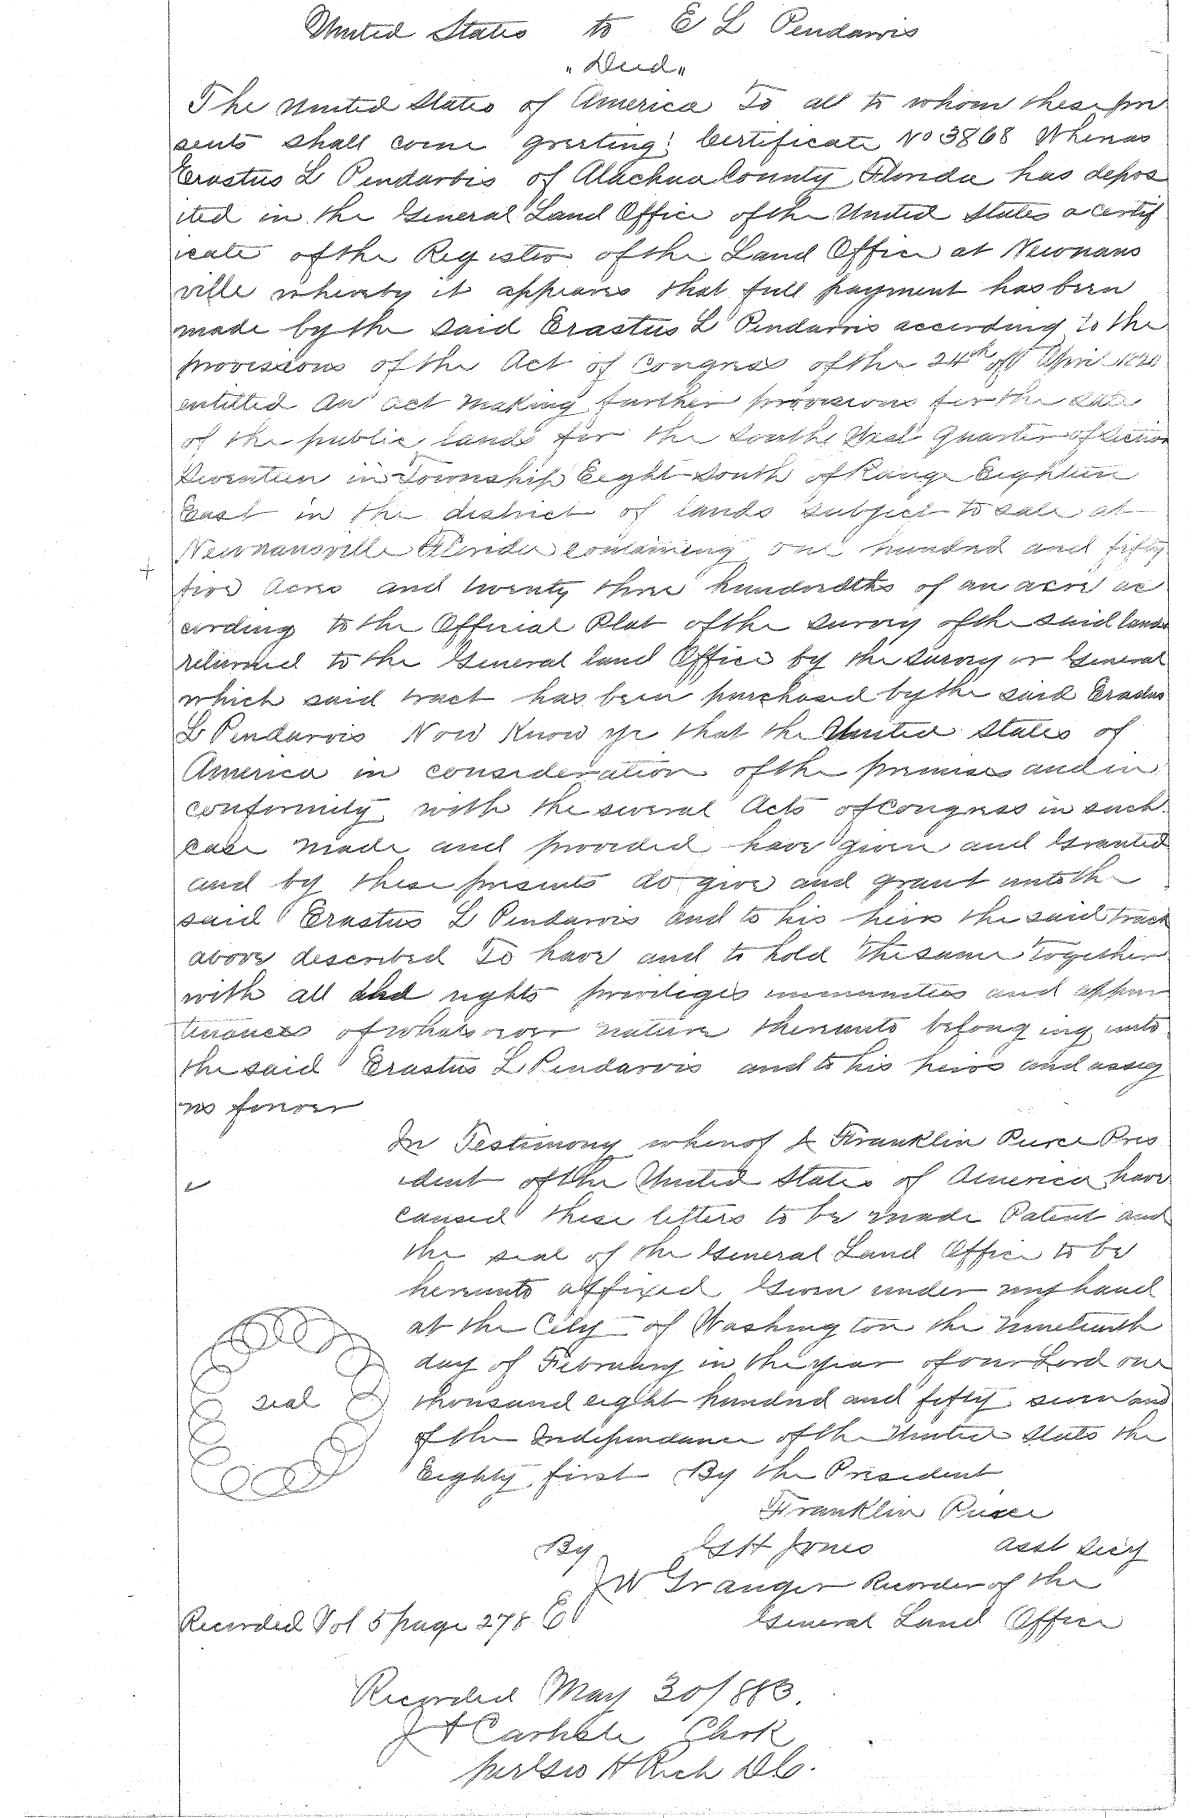 United States to E L Pendarvis
"Deed"
The United States of America To all to whom these pre
sents shall come greeting: Certificate No 3868 Whereas
Erastus L Pendarvis of Alachua County Florida has depos
ited in the General Land Office of the United States a certif
icate of the Register of the Land Office at Newnans
ville whereby it appears that full payment has been
made by the said Erastus L Pendarvis according to the
provisions of the Act of Congress of the 24th of April 1820
entitled An act making further provisions for the sale
of the public lands for the South West Quarter of Section
Seventeen in Township Eight South of Range Eighteen
East in the district of lands subject to sale at
Newnansville Florida containing one hundred and fifty
five Acres and twenty three hundredths of an acre ac
cording to the Official Plat of the survey of the said lands
returned to the General land Office by the Survey or General
which said tract has been purchased by the said Erastus
L Pendarvis Now Know ye that the United States of
America in consideration of the premises and in
conformity with the several Acts of Congress in such
case made and provided have given and Granted
and by these presents do give and grant unto the
said Erastus L Pendarvis and to his heirs the said tract
above described To have and to hold the same together
with all the rights privileges immunities and appur
tenances of whatsoever nature thereunto belonging unto
the said Erastus L Pendarvis and to his heirs and assig
ns forever
In Testimony whereof I Franklin Pierce Pres
ident of the United States of America have
caused these letters to be made Patent and
the seal of the General Land Office to be
hereunto affixed Given under my hand
at the City of Washington the Nineteenth
day of February in the year of our Lord one
seal
thousand eight hundred and fifty seven and
of the Independance of the United States the
Eighty first By the President
Franklin Pierce
By G H Jones asst Secy
J W Granger Recorder of the
Recorded Vol 5 page 278 General Land Office
Recorded May 30/1883.
J A Carlisle Clerk
per Geo H Rich D C.